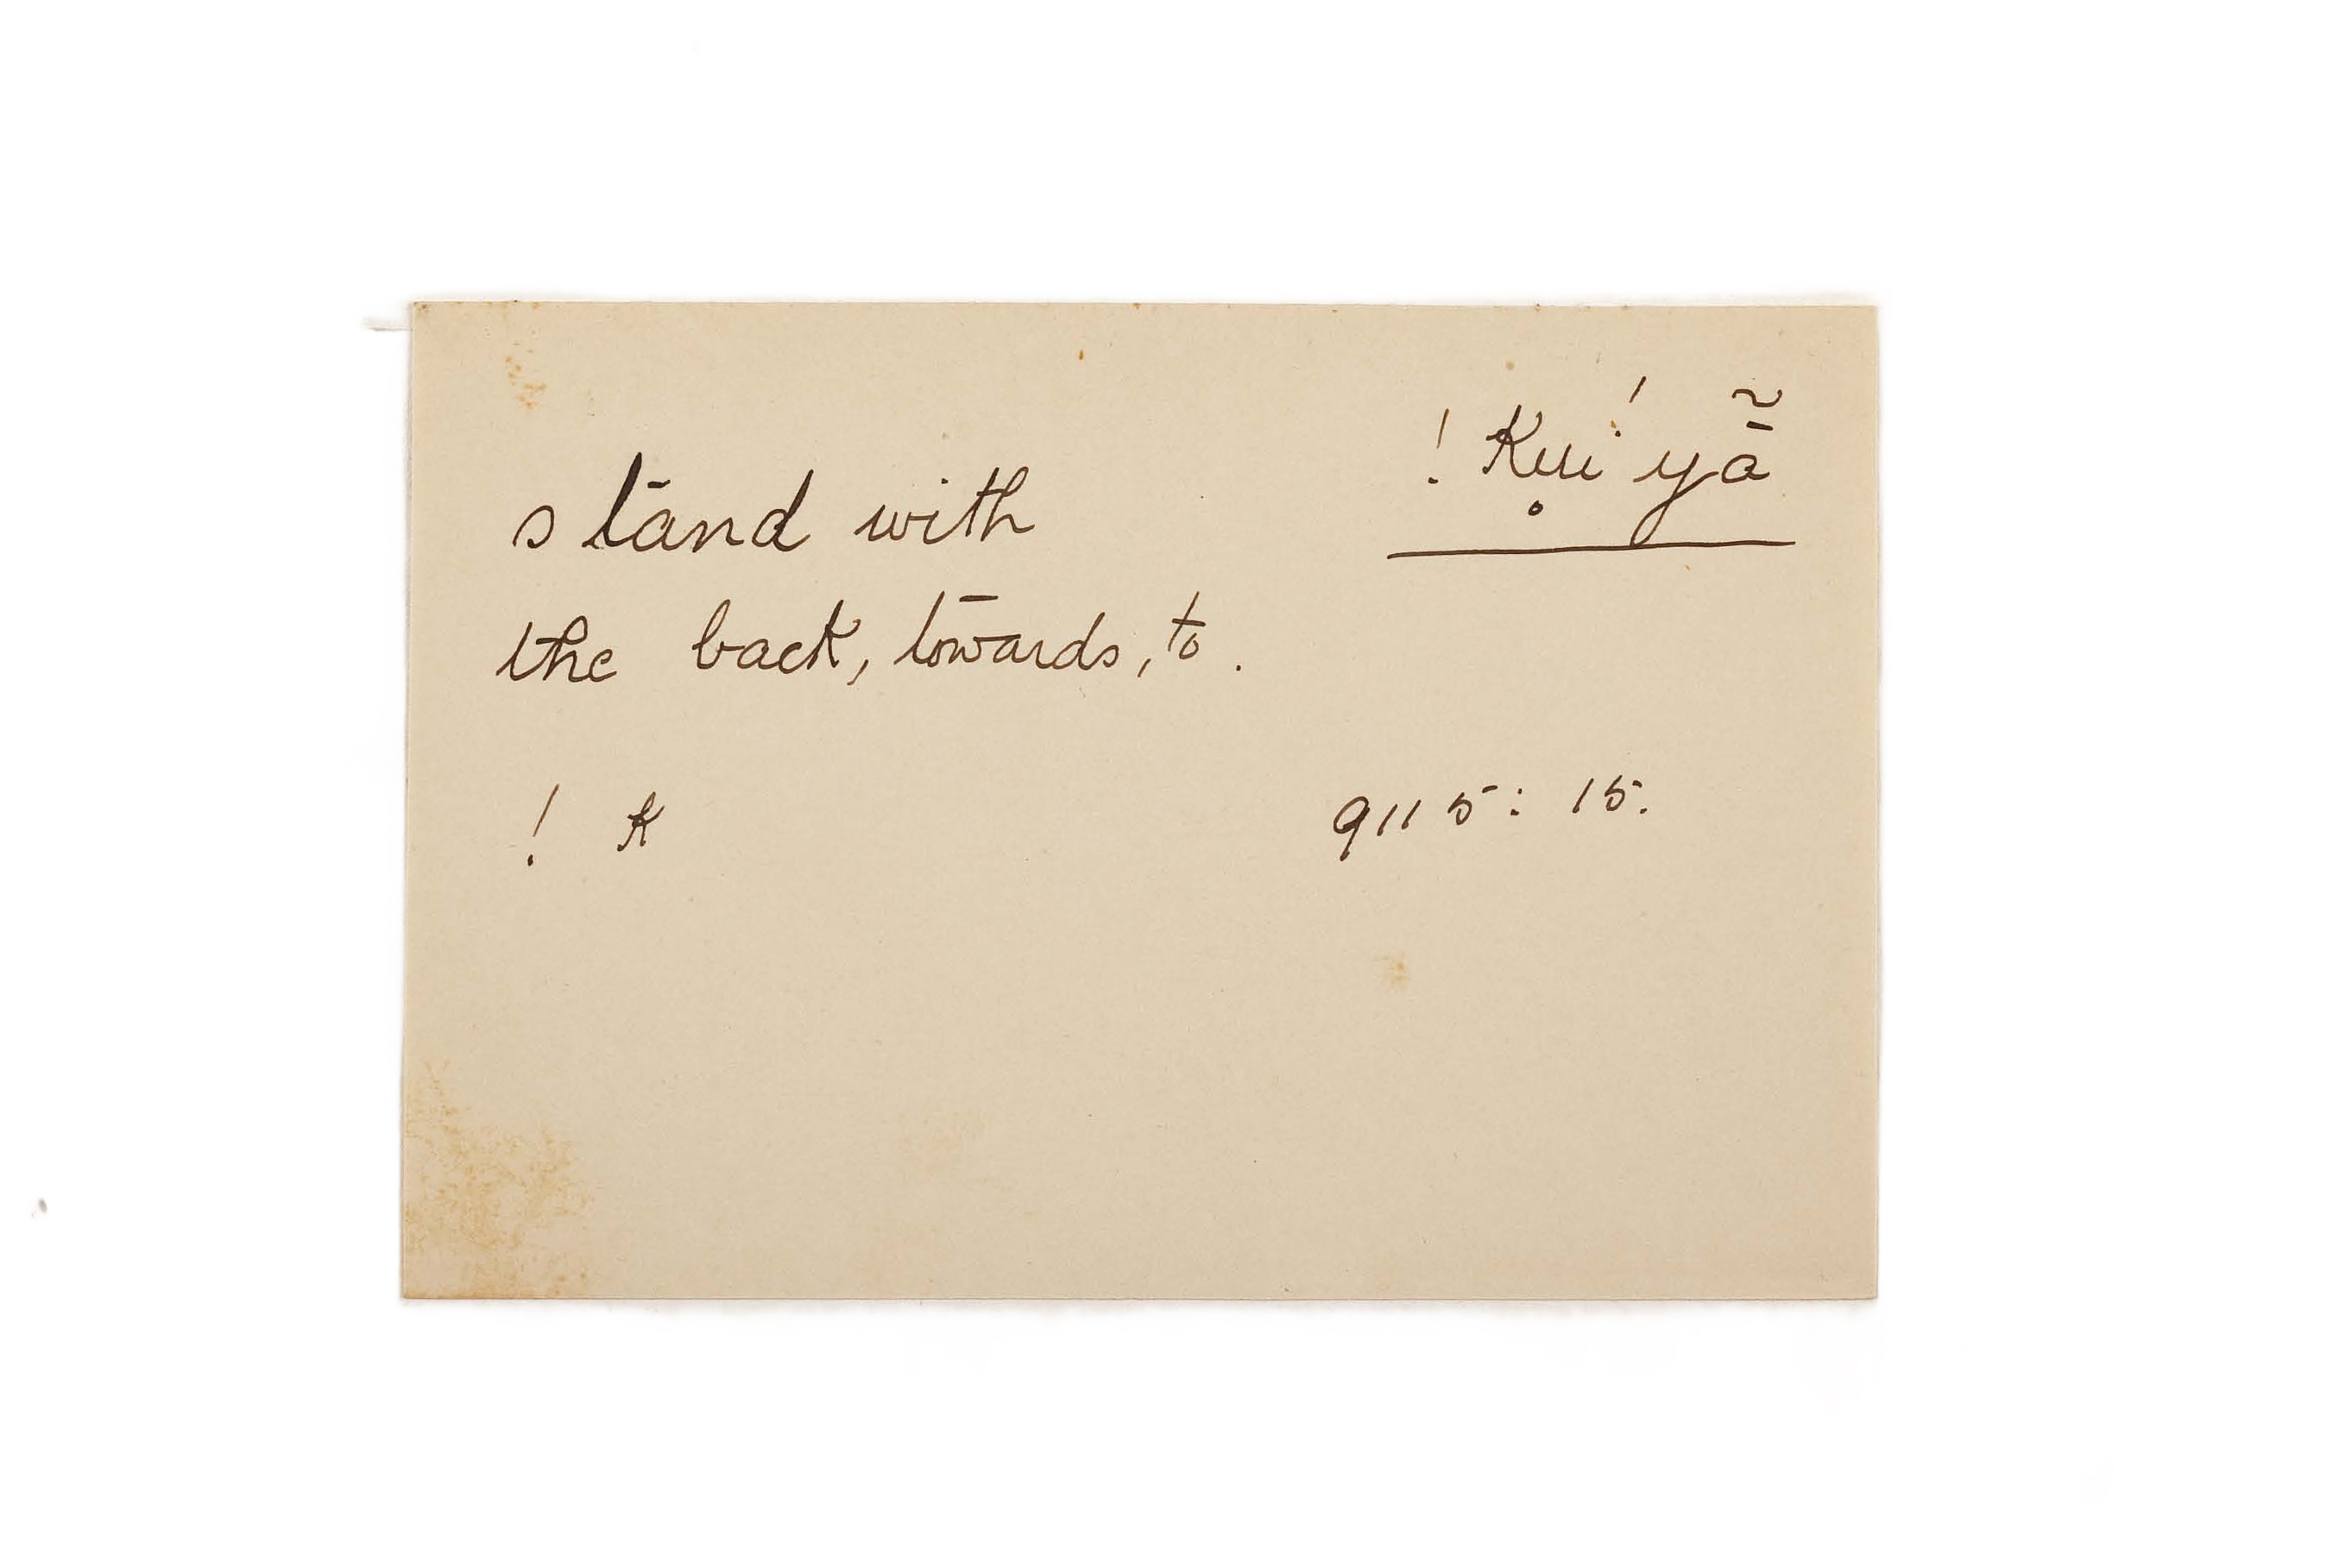 !kụi´ yā̃
stand with
the back, towards, to.
! k 9115: 15.